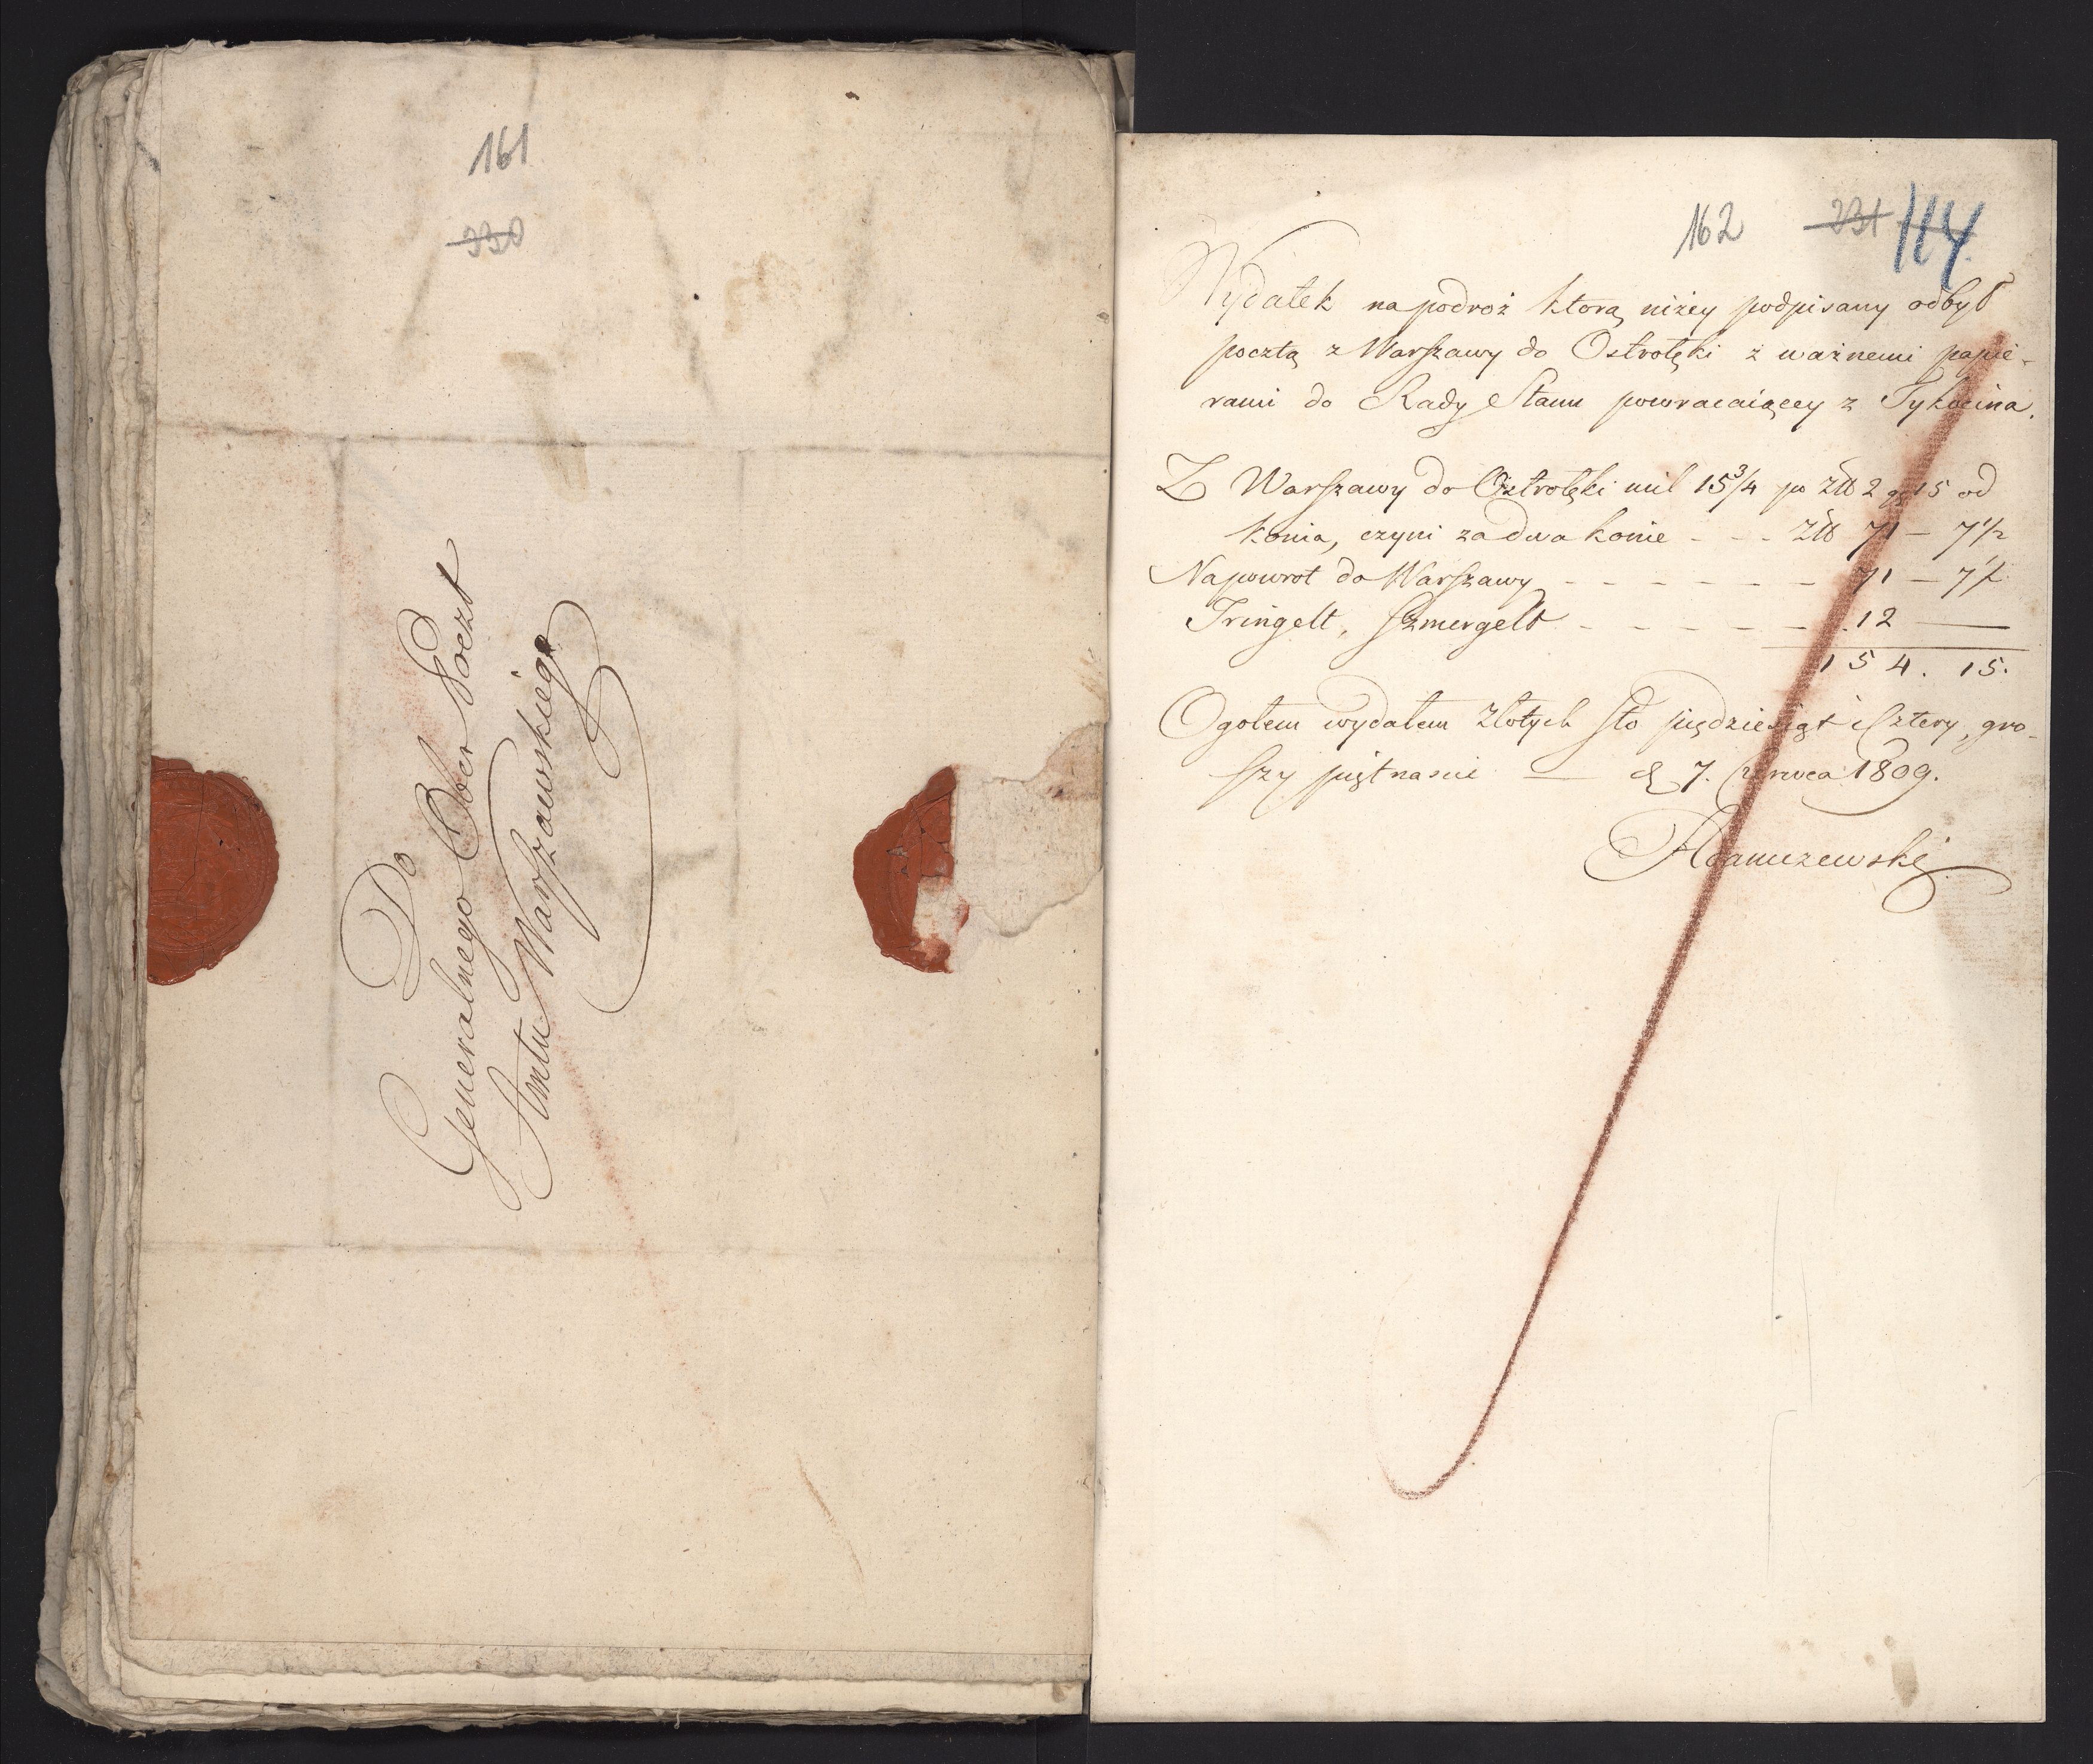 161
330
Do
Generalnego Ober Poczt
Amtu Warszawskiego
162 231 114
Wydatek na podroż ktorą niżey podpisany odbył
pocztą z Warszawy do Ostrołęki z ważnemi papie-
rami do Rady Stanu powracaiącey z Tykocina.
Z Warszawy do Ostrołęki mil 15 3/4 po złł 2 gr 15 od
konia, czyni za dwa konie - - - złł 71 - 7 1/2
Napowrot do Warszawy - - - - - - 71 - 7 1/2
Tringelt, Szmergelt - - - - - - 12 —
154. 15.
Ogołem wydałem Złotych sto piędziesiąt cztery, gro-
szy piętnascie — d 7. Czerwca 1809.
Adamczewski